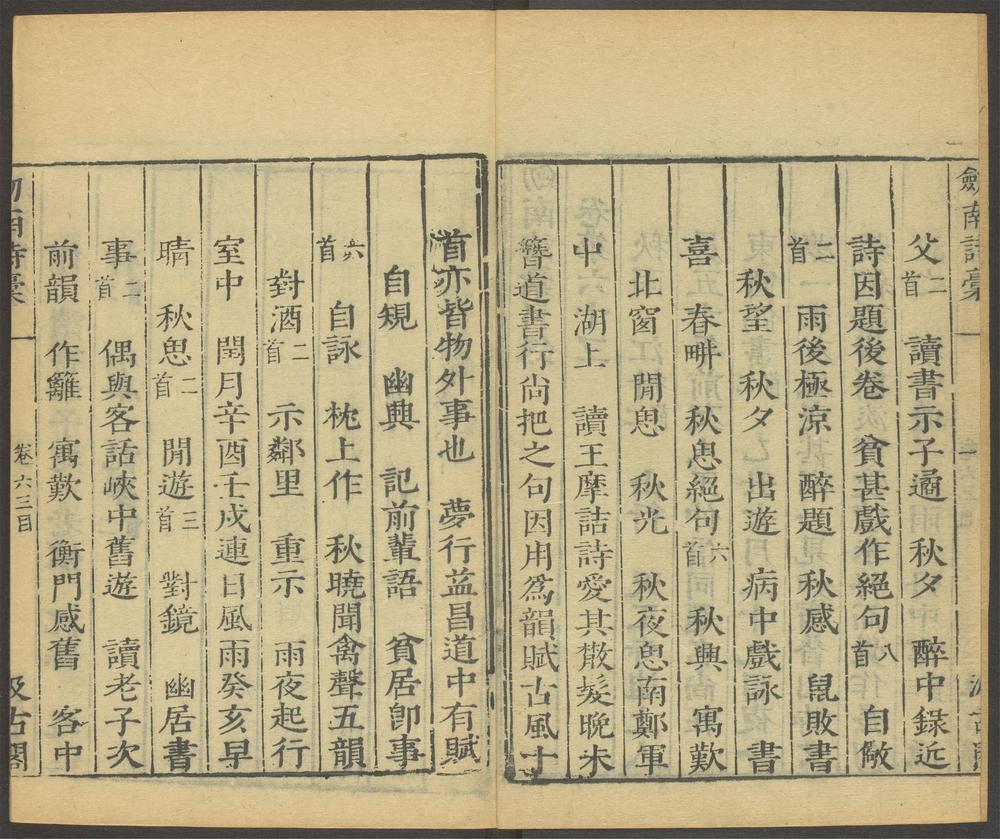 劍南詩稾
父二首　讀書示子遹　秋夕　醉中錄近
詩因題後卷　貧甚戲作絕句八首　自儆
二首　雨後極涼　醉題　秋感　鼠敗書
秋望　秋夕　出遊　病中戲詠　書
喜　春畊　秋思絕句六首　秋興　寓歎
北窗　閒思　秋光　秋夜思南鄭軍
中　湖上　讀王摩詰詩愛其散髮晚未
簪道書行尚把之句因用爲韻賦古風十
首亦皆物外事也　夢行益昌道中有賦
自規　幽興　記前輩語　貧居卽事
六首　自詠　枕上作　秋曉聞禽聲五韻
對酒二首　示鄰里　重示　雨夜起行
室中　閏月辛酉壬戌連日風雨癸亥早
晴　秋思二首　閒遊三首　對鏡　幽居書
事二首　偶與客話峽中舊遊　讀老子次
前韻　作籬　寓歎　衡門感舊　客中
劍南詩稾　卷六三目　汲古閣